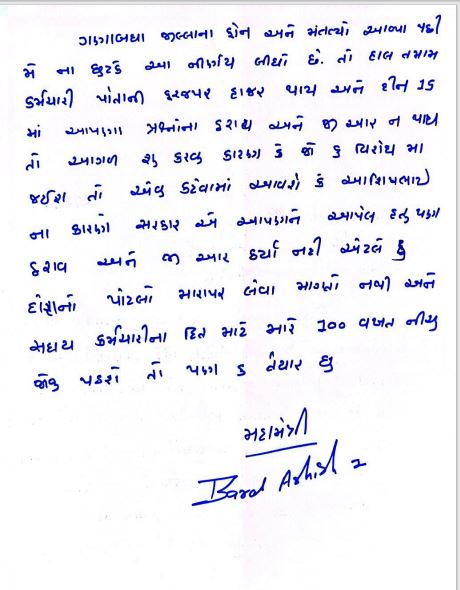 ગણાબધા જીલ્લાના ફોન અને મંતવ્યો આવ્યા પછી
મે ના છુટકે આ નીર્ણય લીધો છે. તો હાલ તમામ
કર્મચારી પોતાની ફરજપર હાજર થાય અને દીન 15
માં આપણા પ્રશ્નોના ઠરાવ અને જી આર ન થાય
તો આગળ શુ કરવુ કારણ કે જો હુ વિરોધ મા
જઈશ તો એવુ કહેવામાં આવશે કે આશિષભાઈ
ના કારણે સરકાર એ આપણને આપેલ હતુ પણ
ઠરાવ અને જી આર કર્યા નહી એટલે હુ
દોશનો પોટલો મારાપર લેવા માગતો નથી અને
મારે 100 વખત નીચુ
જોવુ પડશે તો પણ હુ તૈયાર છુ
મહામંત્રી
Barot Ashish